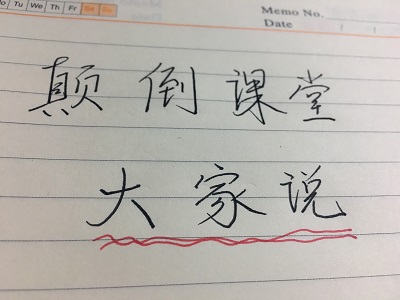 Tu We Th Fr Sa Su
Memo No.
Date / /
颠倒课堂
大家说